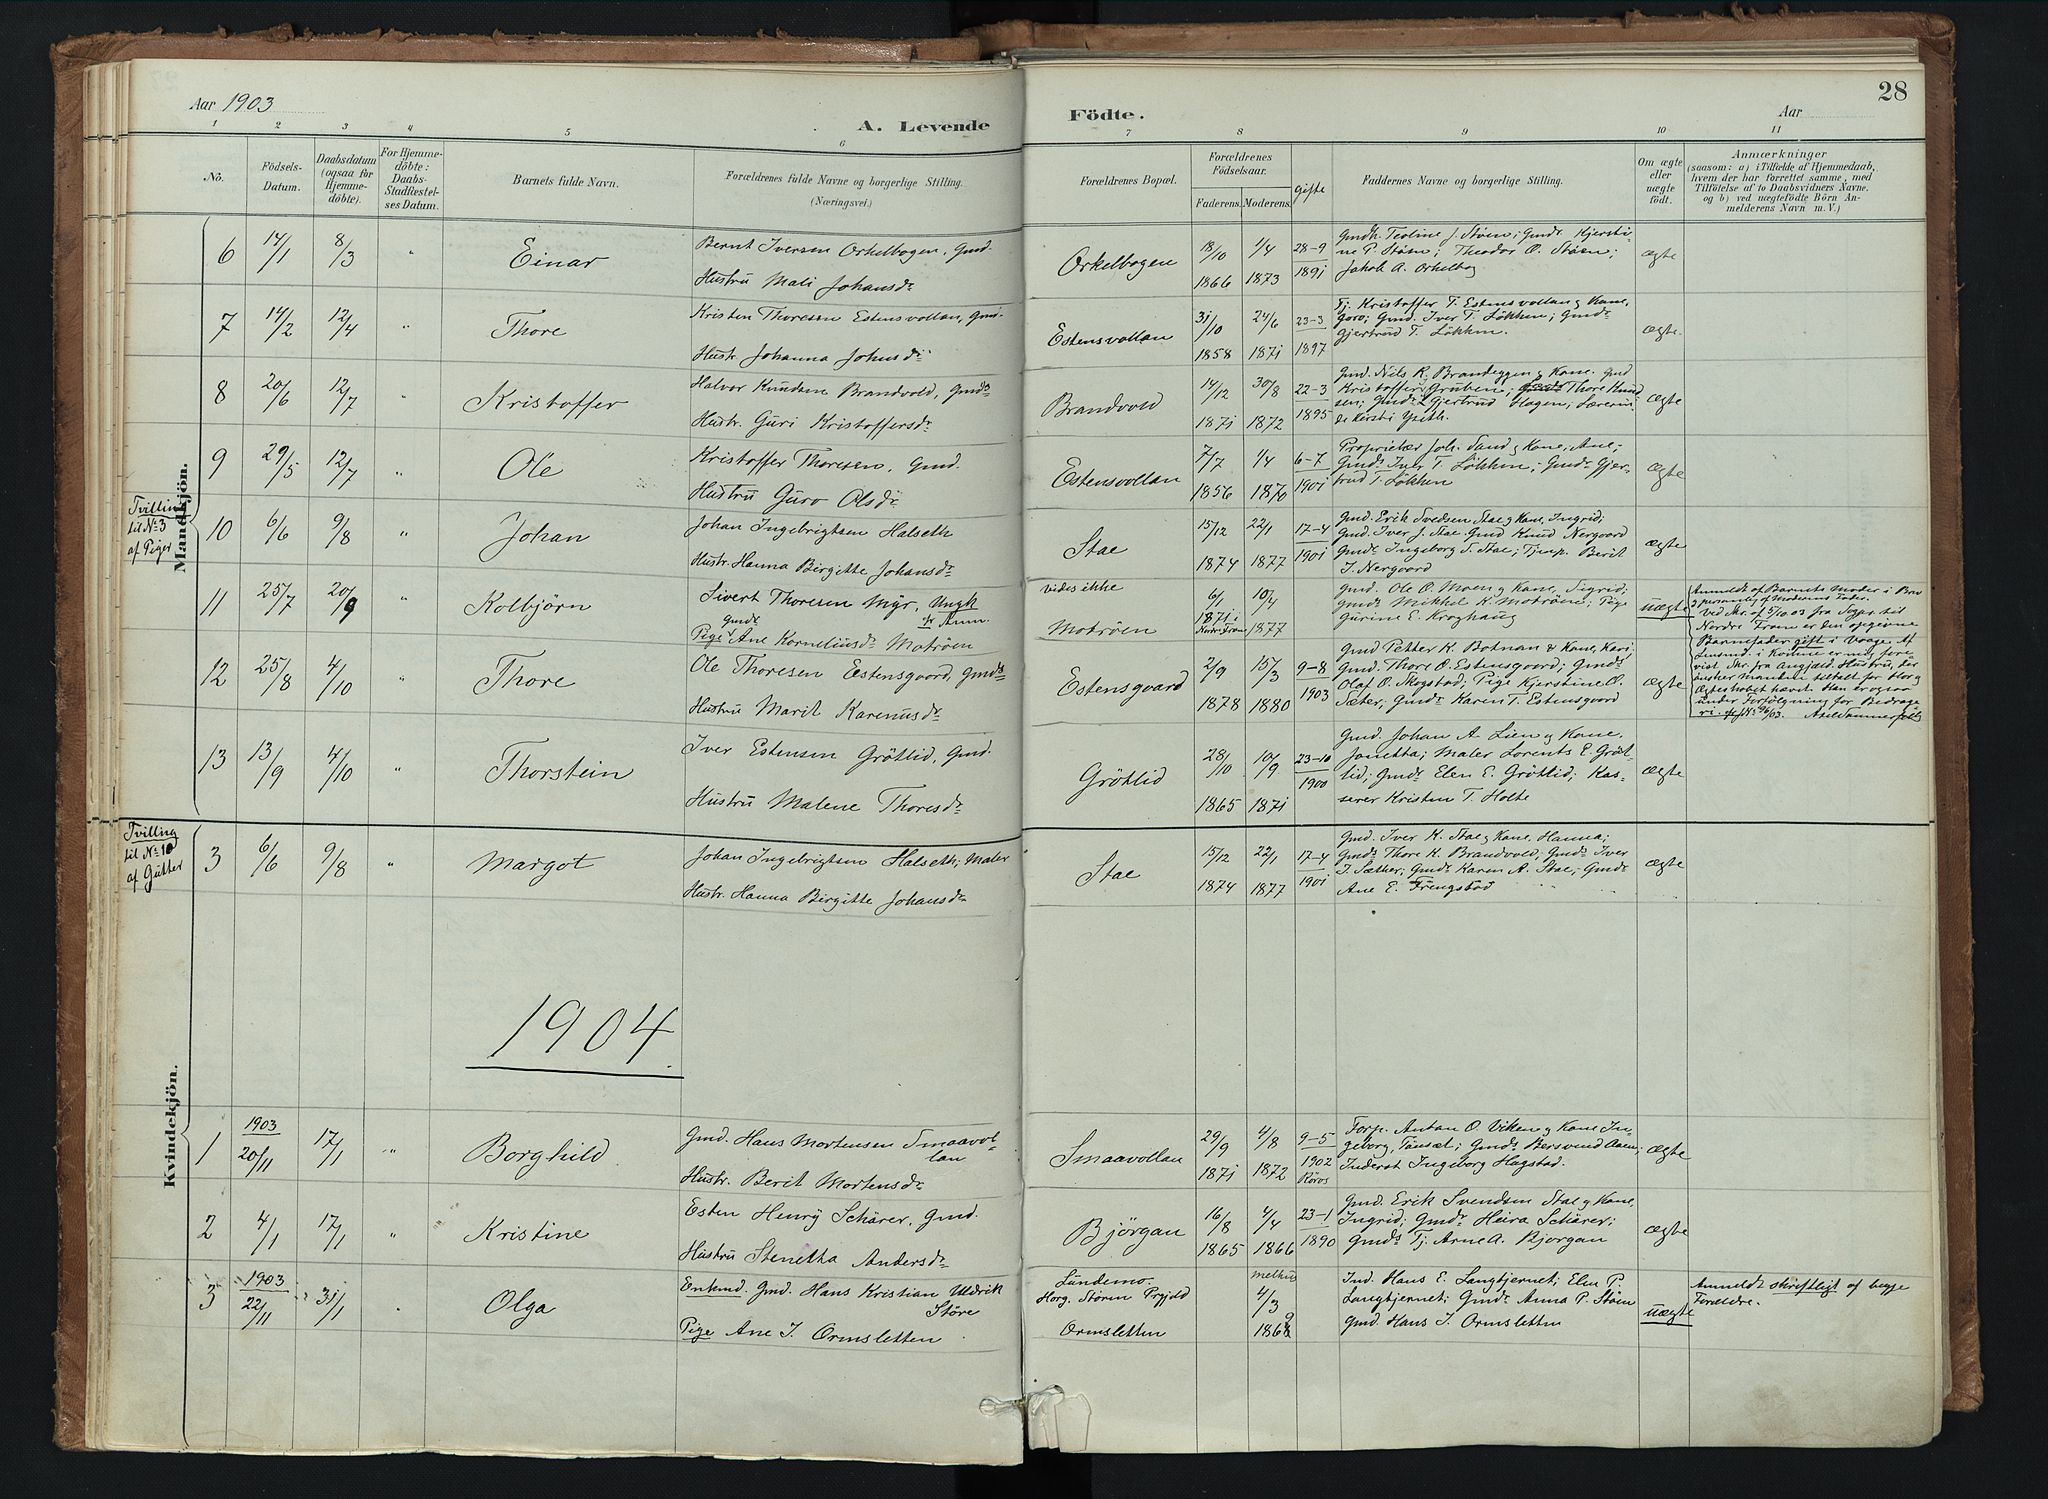 28
Aar 1903
A. Levende
Födte.
Aar
1 2 3 4 5 6 7 8 9 10 11
No.
Födsels-Datum.
Daabsdatum (ogsaa for Hjemme-döbte).
For Hjemme-döbte: Daabs-Stadfæstel-ses Datum.
Barnets fulde Navn.
Forældrenes fulde Navne og borgerlige Stilling.
(Næringsvei.)
Forældrenes Bopæl.
Forældrenes Födselsaar.
Faderens.
Moderens.
gifte
Faddernes Navne og borgerlige Stilling.
Om ægte eller uægte födt.
Anmærkninger
(saasom: a) i Tilfælde af Hjemmedaab, hvem der har forrettet samme, med Tilföielse af to Daabsvidners Navne. og b) ved uægtefödte Börn An-melderens Navn m. V.)
Mandkjön.
6 14/1 8/3 " Einar
Bernt Iversen Orkelbogen, Gmd.
Hustru Mali Johansdr
Orkelbogen 18/10 1866 1/4 1873 28-9 1891
Gmdk. Teoline J. Støen; Gmdr Kjersti-
ne P. Støen; Theodor O. Støen;
Jakob A. Orkelbog
ægte
7 14/2 12/4 " Thore
Kristen Thoresen Estensvollan, Gmd.
Hustr. Johanna Johnsdr
Estensvollan 31/10 1858 24/6 1871 23-3 1897
Tj. Kristoffer T. Estensvollan & Kone,
Goro; Gmd. Iver T. Løkken; Gmdr
Gjertrud T. Løkken.
ægte.
8 20/6 12/7 " Kristoffer
Halvor Knudsen Brandvold, Gmd.
Hustr. Guri Kristoffersdr
Brandvold 14/12 1871 30/8 1872 22-3 1895
Gmd. Nils K. Brandeggen & Kone. Gmd
Kristoffer Gruben; Thore Knud
sen; Gmdr Gjertrud Hagen; Lærerin-
de Kirsti Yseth.
ægte
9 29/5 12/7 " Ole
Kristoffer Thoresen, Gmd.
Hustru Guro Olsdr
Estensvollan 7/7 1856 1/4 1870 6-7 1901
Proprietær Joh. Sand & Kone, Ane;
Gmds Iver T. Løkken; Gmdr Gjer-
trud T. Løkken
ægte
Tvilling
til No 3
af Piger
10 6/6 9/8 " Johan
Johan Ingebrigtsen Halseth
Hustr. Hanna Birgitte Johansdr
Stae 15/12 1874 22/1 1877 17-4 1901
Gmd. Erik Svedsen Stae & Kone, Ingrid;
Gmd. Iver J. Stae. Gmd Knud Nergaard
Gmdr Ingeborg S. Stae; Tjenp. Berit
J. Nergaard
ægte
11 25/7 20/9 " Kolbjörn
Sivert Thoresen Myr, Ungk
fr Anm.
Gmdr
Pige Ane Korneliusdr Motrøen
vides ikke
Motrøen 6/1 1871 i Nordre Fron 10/4 1877
Gmd. Ole O. Moen & Kone, Sigrid;
Gmdr Mikkel K. Motrøen; Pige
Gurine E. Kroghaug
uægte
Anmeldt af Barnets Moder i Brev
& personlig af Moderens Fader.
Ved Skr. af 5/10 03 fra Sogpr. til
Nordre Fron er den opgivne
Barnefader gift i Vaage. Af
Lensmd. i Kvikne er mig fore
vist Skr. fra Angjæld. Hustru, der
ønsker Manden tiltalt for Hor &
Ægteskabet hævet. Han er ogsaa
under Forfølgning for Bedrage
ri.
12 25/8 4/10 " Thore
Ole Thoresen Estensgaard, Gmds
Hustru Marit Karenusdr
Estensgaard 2/9 1878 15/3 1880 9-8 1903
Gmd Petter K. Botnan & Kone, Kari
Gmd. Thore O. Estensgaard; Gmds
Olaf O. Skogstad; Pige Kjerstine O.
Sæter; Gmdr Karen T. Estensgaard
ægte
13 13/9 4/10 " Thorstein
Iver Estensen Gröttlid, Gmd.
Hustru Malene Thoresdr
Gröttlid 28/10 1865 10/9 1871 23-10 1900
Gmd. Johan A. Lien & Kone,
Jonetta; Maler Lorents E. Gröt
lid; Gmdr Elen E. Gröttlid; Kas-
serer Kristen T. Holte
ægte
Tvilling
til No 10
af Gutter
3 6/6 9/8 " Margot
Johan Ingebrigtsen Halseth; Maler
Hustr. Hanna Birgitte Johansdr
Stae 15/12 1874 22/1 1877 17-4 1901
Gmd. Iver K. Stae & Kone, Hanna;
Gmds Thore K. Brandvold; Gmds Iver
J. Sæther; Gmdr Karen A. Stae; Gmdr
Ane E. Frengstad
ægte
1904.
Kvindekjön.
1 1903 20/11 17/1 " Borghild
Gmd. Hans Mortensen Smaavol-
lan
Hustr. Berit Mortensdr
Smaavollan 29/9 1871 4/8 1872 9-5 1902 Röros
Forp. Anton O. Viken & Kone In-
geborg, Tönset; Gmds Bersvend Aaen;
Inderst Ingeborg Hagstad.
ægte
2 4/1 17/1 " Kristine
Esten Henry Schärer, Gmd.
Hustru Stenetta Andersdr
Bjørgan 16/8 1865 4/4 1866 23-1 1890
Gmd. Erik Svendsen Stae & Kone,
Ingrid; Gmdr Heira Schärer;
Gmds Tj. Arne A. Bjorgan
ægte
3 1903 22/11 31/1 " Olga
Enkmd. Gmd. Hans Kristian Uldrik
Störe
Pige Ane J. Ormsletten
Lundemo.
Horg. Støren Prgjeld
Ormsletten
Melhus
4/3
1869
Ind. Hans E. Langtjernet; Elen P.
Langtjernet; Gmdr Anna P. Støen
Gmd. Hans J. Ormsletten
uægte
Anmeldt skriftligt af begge
Forældre.